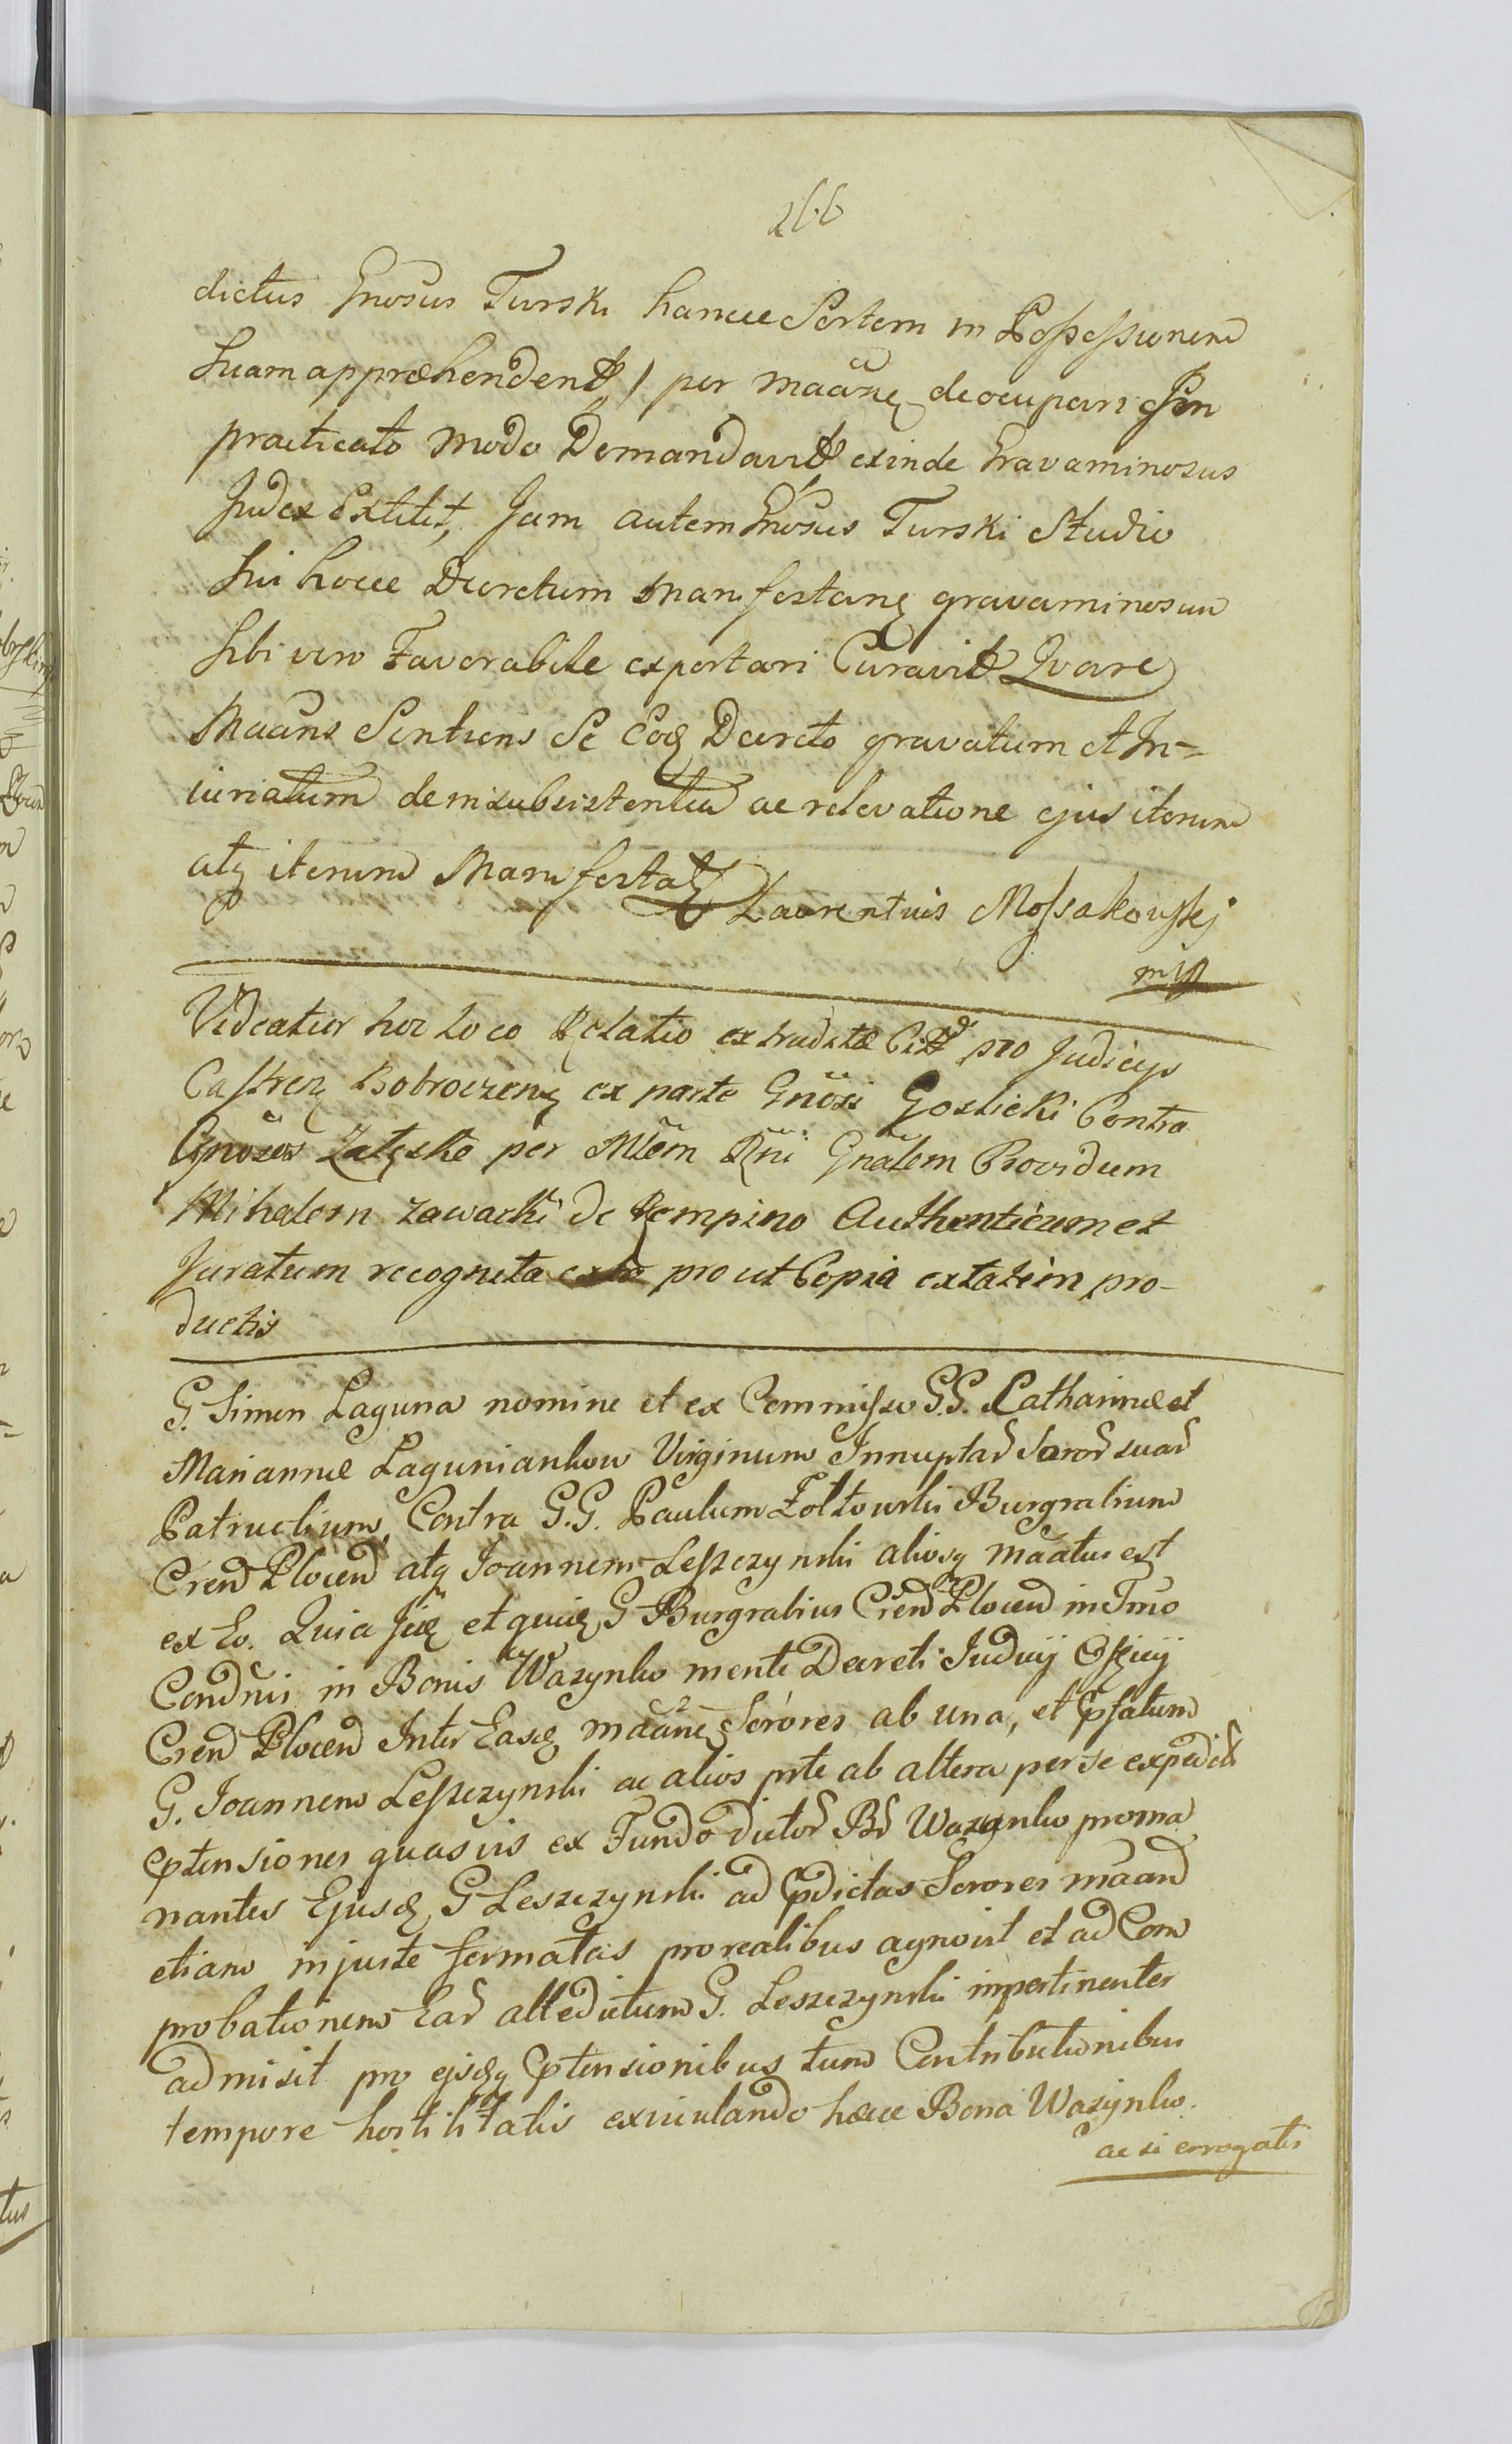 266
dictus Gnosus Turski hancce Sortem in Possessionem
Suam appræhendent) per maãnẽ deocupari
practicato modo Demandavit exinde Gravaminosus
Judex Extitit, Jam autem Gnosus Turski Studio
Sui hocce Decretum Manifestanẽ gravaminosum
Sibi vero Favorabile exportari Curavit Qvare
Maãns Sentiens Se Eoq Decreto gravatum et In=
iuriatum de nisubsistentia ac relevatione ejus iterum
atq iterum Manifestat
Laurentius Mossakowskj
mp
Videatur hoc loco Relatio extraditæ pro Judicijs
Castren Bobrovzen ex parte Gnosi Goslicki Contra
Gnosos Załęskie per Mtem Rni Gnałem Providum
Mihalem Zawacki de Rempino Authenticum et
Juratum recognita prout Copia extatim pro-
ductis
G. Simon Laguna nomine et ex Commisso G.G. Catharinæ et
Mariannæ Lagunianhow Virginum Innuptar Soror suar
Patruelium, Contra G.G. Paulum Żołtowski Burgrabium
Cren Plocen atq Joannem Leszczynski aliosq maãtus est
ex Eo. Quia et quia G Burgrabius Cren Plocen in Tmo
Condnii in Bonis Wazynko mente Decreti Judicij Officij
Cren Plocen Inter Easq maãnẽ Sorores ab una, et Psatum
G. Joannem Leszczynski ac alios pte ab altera per se expedit
Ptensiones quasvis ex Fundo dictor Br Wazynko proma
nantes Ejusq G Leszczynski ad Pdictas Sorores maãn
etiam injuste formatas pro realibus agnovit et ad Com
probationem Ear attedictum G. Leszczynski impertinenter
admisit pro ejsdq Ptensionibus tum Contributionibus
tempore hostilitatis exviolando hæcce Bona Wazynko
ac si errogatis